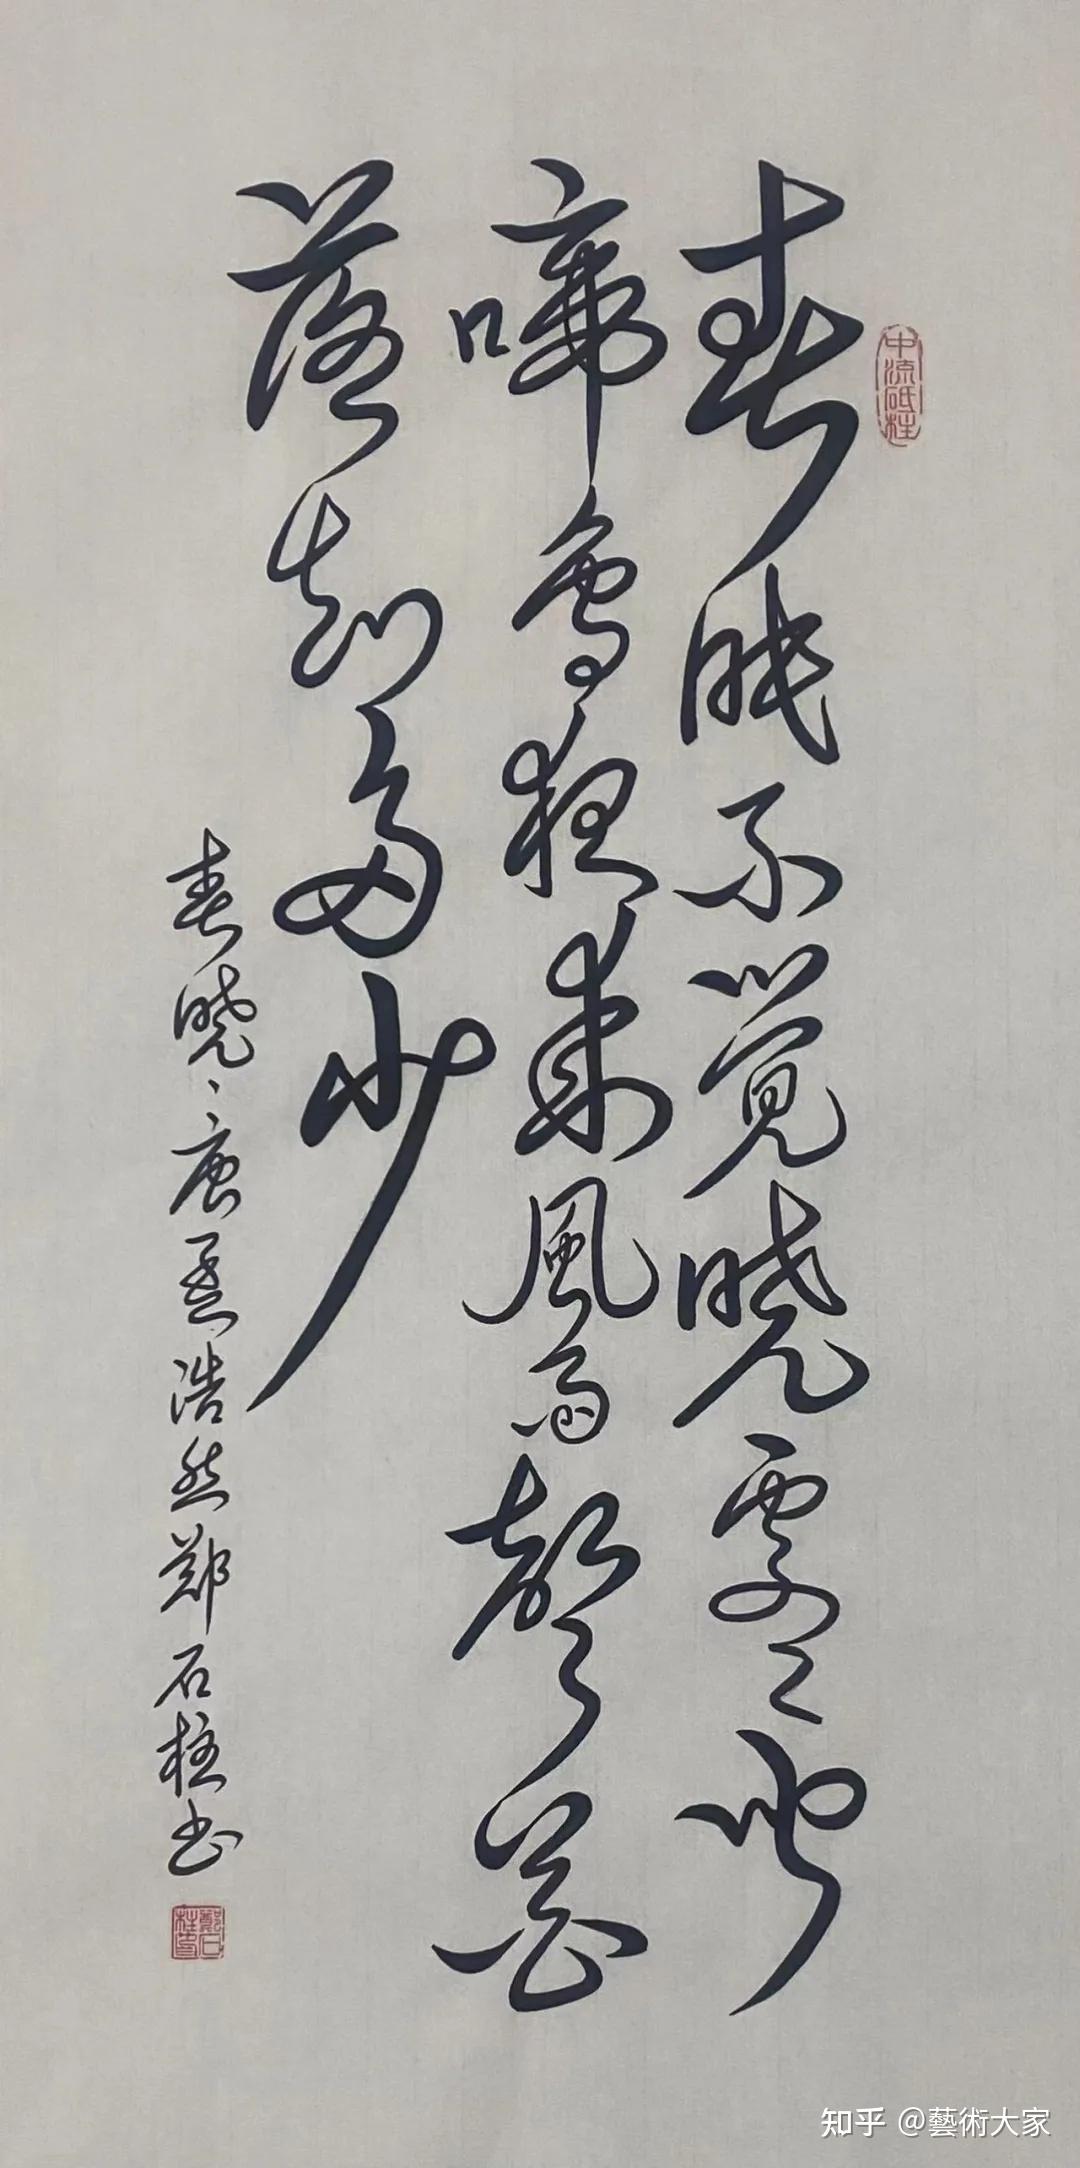 中流砥柱
春眠不觉晓处处闻
啼鸟夜来風雨聲花
落知多少
春晓唐孟浩然郑石柱书
鄭石柱印
知乎 @藝術大家